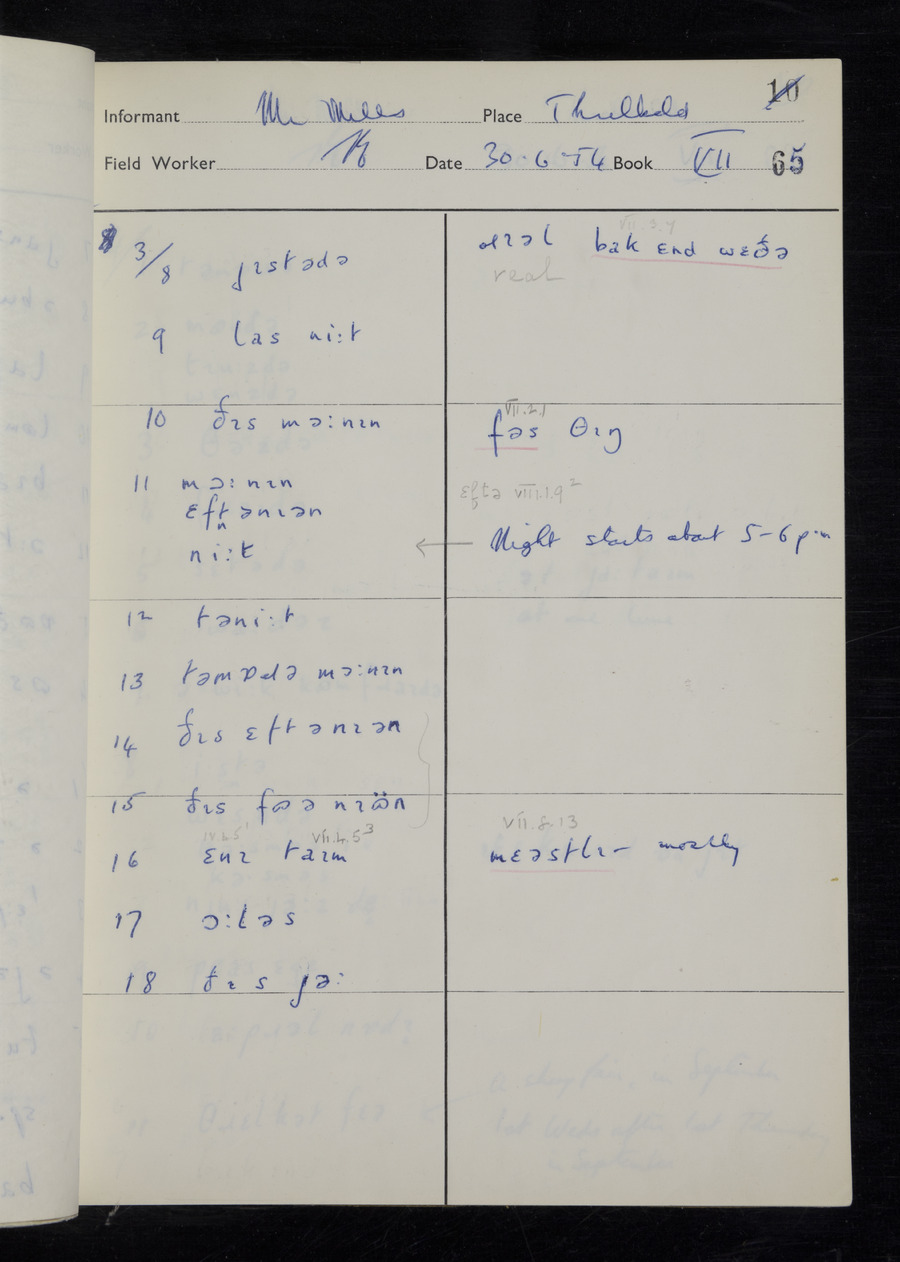 10
Informant Mr Mills Place Threlkeld
Field Worker Date 30·6·54 Book VII 65
3/8 jɪstədə
9 las niːt
10 ðɪs mɔːnɪn
11 mɔːnɪn
ɛftənɪən
niːt
12 təniːt
13 təmɒɹə mɔːnɪn
14 ðɪs ɛftənɪən
15 ðɪs
IV.6.5 VII.4.5³
16 ɛnɪ taɪm
17 ɔːləs
18 ðɪs jəː
VII.3.7
ɹɪəl bak ɛnd wɛðə
real
VII.2.1
fəs θɪŋ
ɛftə VIII.1.9²
← Night starts about 5–6 p.m
VII.8.13
mɛəstlɪ – mostly